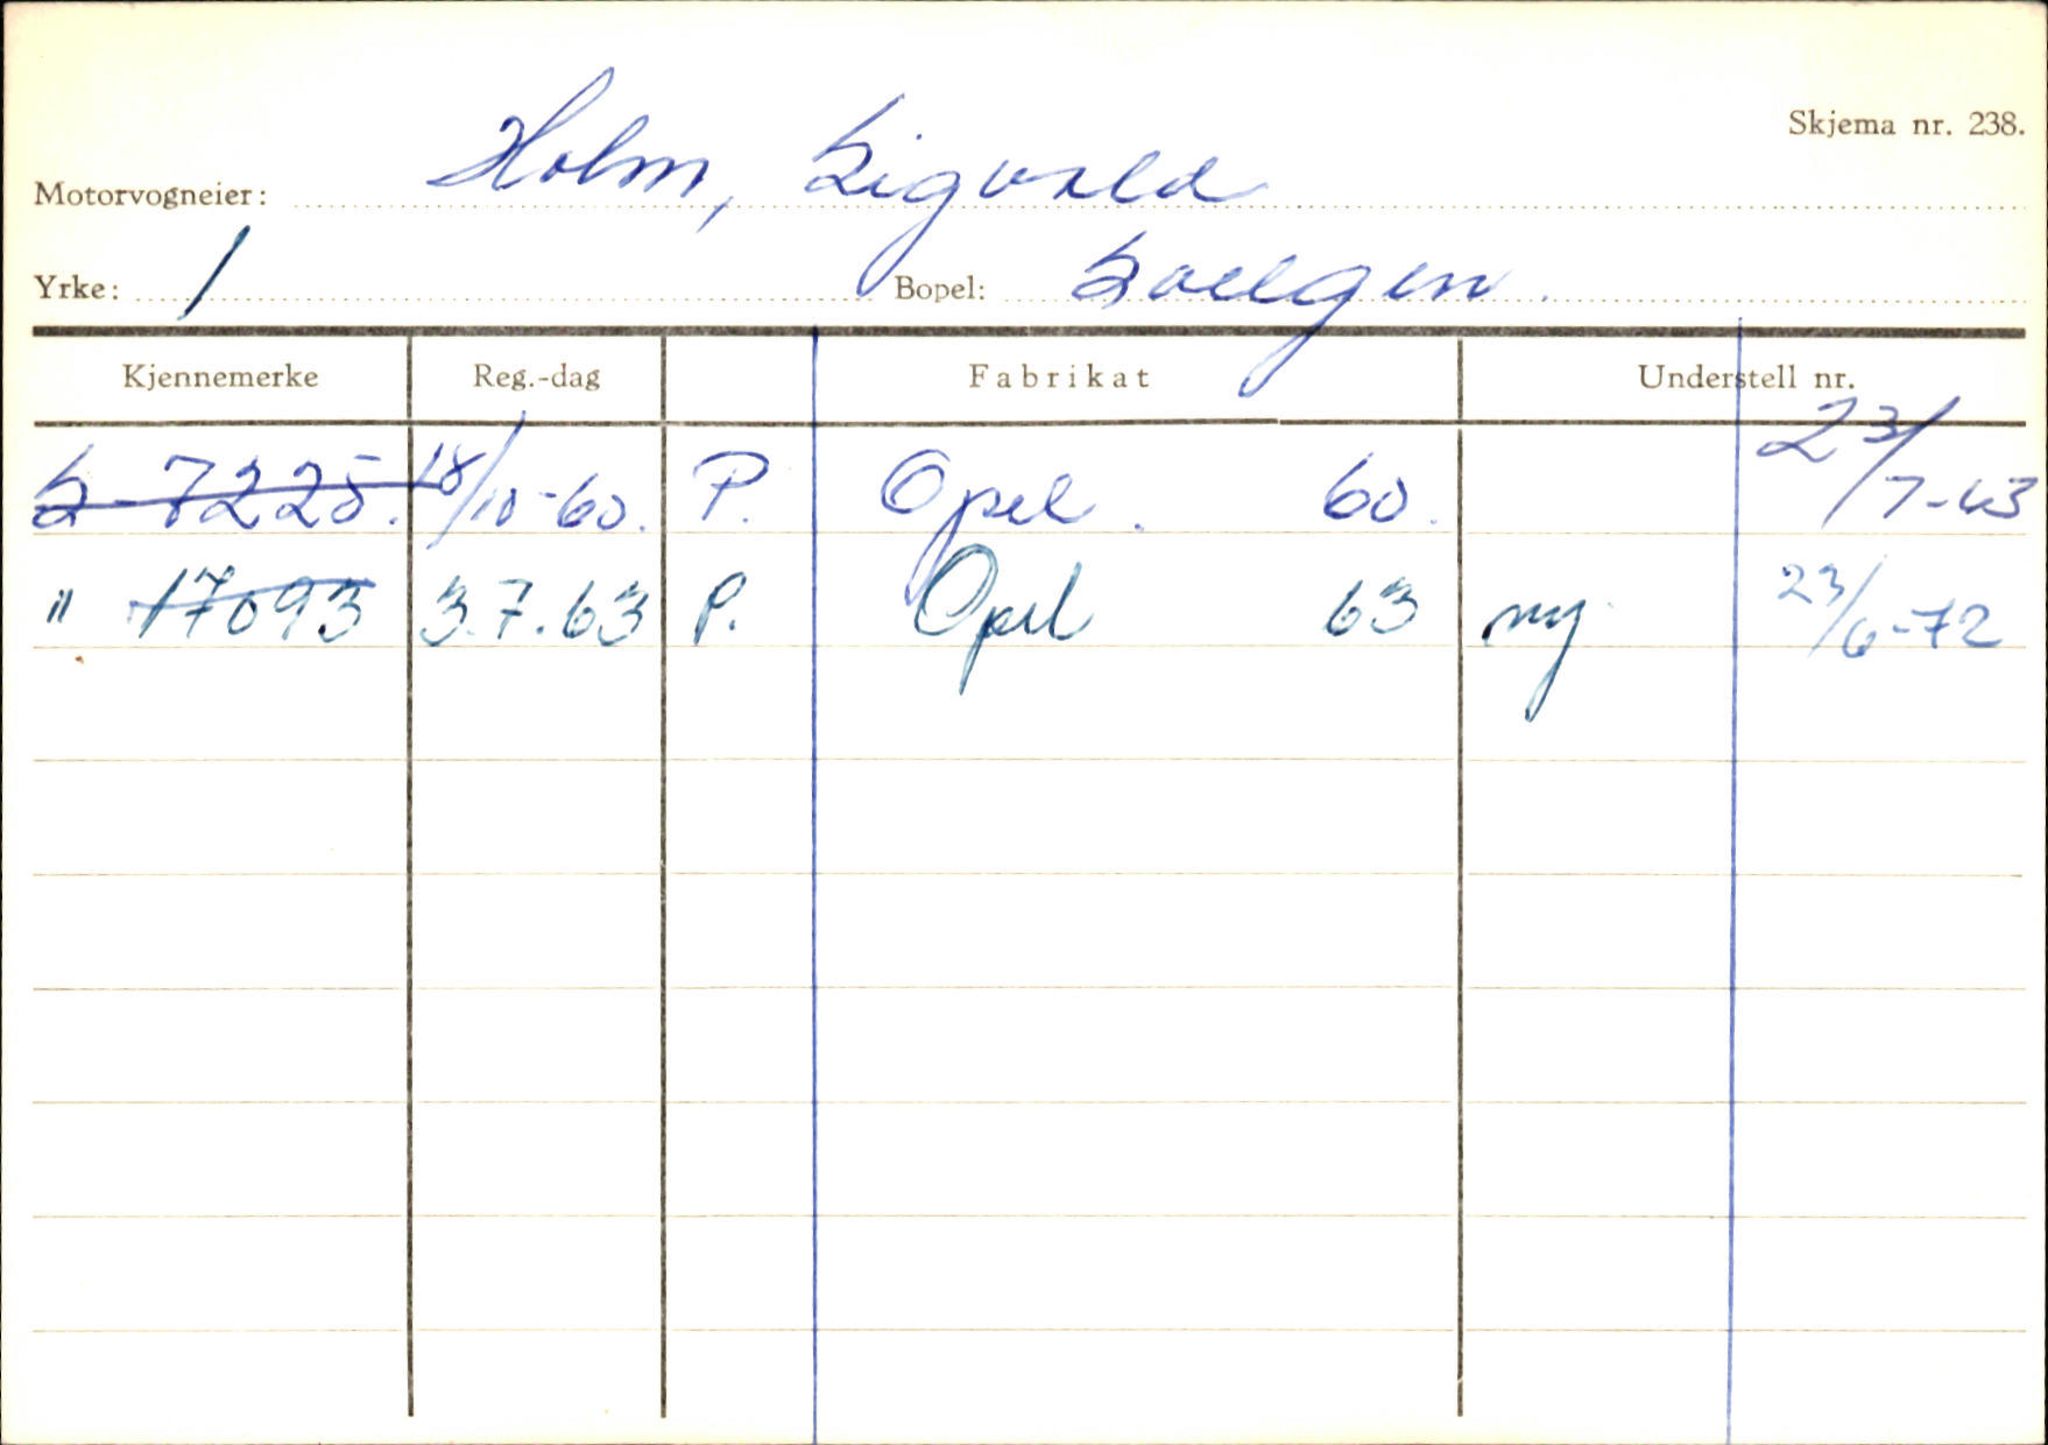 Skjema nr. 238.
Motorvogneier: Holm, Sigvald
Yrke: / Bopel: Svelgen.
Kjennemerke Reg.-dag Fabrikat Understell nr.
S-7225. 18/10-60. P. Opel. 60. 23/7-63
" 17093 3.7.63 P. Opel 63 ny 23/6-72